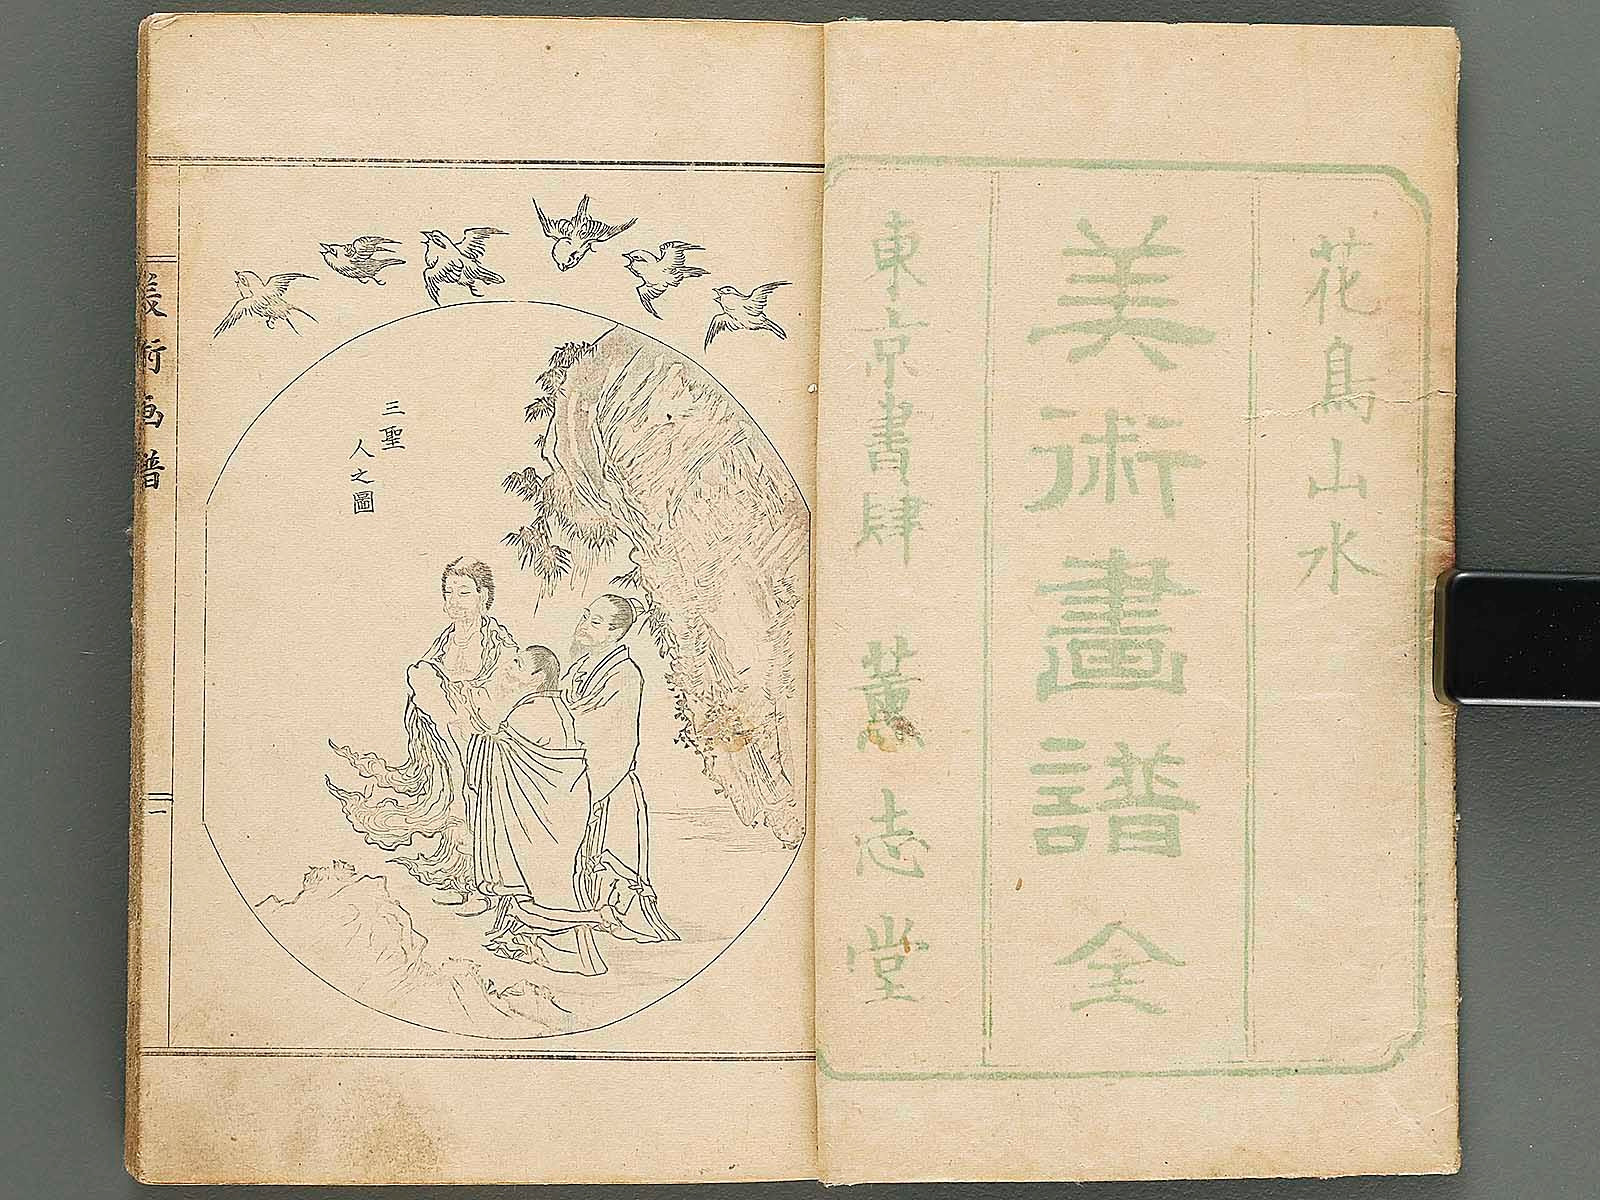 花鳥山水
美術畫譜全
東京書肆 薫志堂
三聖
人之圖
美術画譜
一